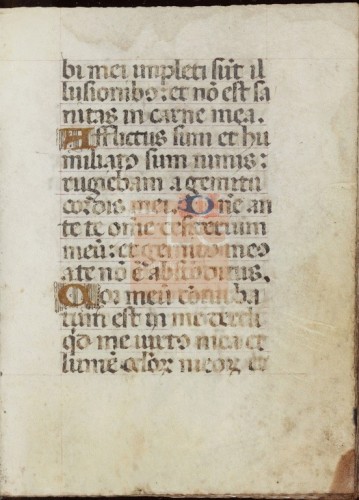 bi mei impleti sūt il
lusionibꝰ: et nō est sa
nitas in carne mea.
Afflictus sum et hu
miliatꝰ sum nimis:
rugiebam a gemitu
cordis mei. Dn̄e an
te te om̄e desiderium
meū: et gemitꝰ meꝰ
a te nō ē absconditus.
Cor meū cōturba
tum est in me dereli
q̄d me virtꝰ mea et
lumē oculoꝝ meoꝝ et